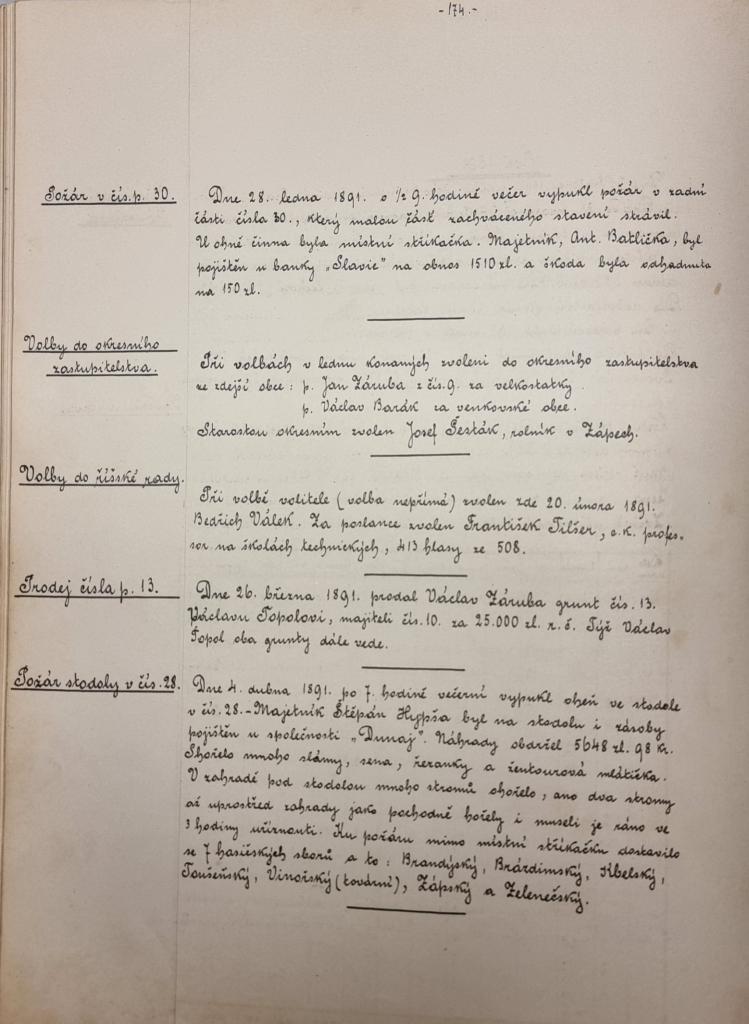 -174.-
Požár v čís. p. 30.
Dne 28. ledna 1891. o ½ 9. hodině večer vypukl požár v zadní
části čísla 30., který malou část zachváceného stavení strávil.
U ohně činna byla místní stříkačka. Majetník, Ant. Batlička, byl
pojištěn u banky „Slavie" na obnos 1510 zl. a škoda byla odhadnuta
na 150 zl.
Volby do okresního
zastupitelstva.
Při volbách v lednu konaných zvoleni do okresního zastupitelstva
ze zdejší obce: p. Jan Záruba z čís. 9. za velkostatky.
p. Václav Barák za venkovské obce.
Starostou okresním zvolen Josef Šesták, rolník v Zápech.
Volby do říšské rady.
Při volbě volitele (volba nepřímá) zvolen zde 20. února 1891.
Bedřich Válek. Za poslance zvolen František Tilšer, c. k. profes-
sor na školách technických, 413 hlasy ze 508.
Prodej čísla p. 13.
Dne 26. března 1891. prodal Václav Záruba grunt čís. 13.
Václavu Topolovi, majiteli čís. 10. za 25.000 zl. r. č. Týž Václav
Topol oba grunty dále vede.
Požár stodoly v čís. 28.
Dne 4. dubna 1891. po 7. hodině večerní vypukl oheň ve stodole
v čís. 28. - Majetník Štěpán Hypša byl na stodolu i zásoby
pojištěn u společnosti „Dunaj". Náhrady obdržel 5648 zl. 98 kr.
Shořelo mnoho slámy, sena, řezanky a žentourová mlátička.
V zahradě pod stodolou mnoho stromů ohořelo, ano dva stromy
až uprostřed zahrady jako pochodně hořely i museli je ráno ve
3 hodiny uříznouti. Ku požáru mimo místní stříkačku dostavilo
se 7 hasičských sborů a to: Brandýský, Brázdimský, Kbelský,
Toušeňský, Vinořský (tovární), Zápský a Zelenečský.